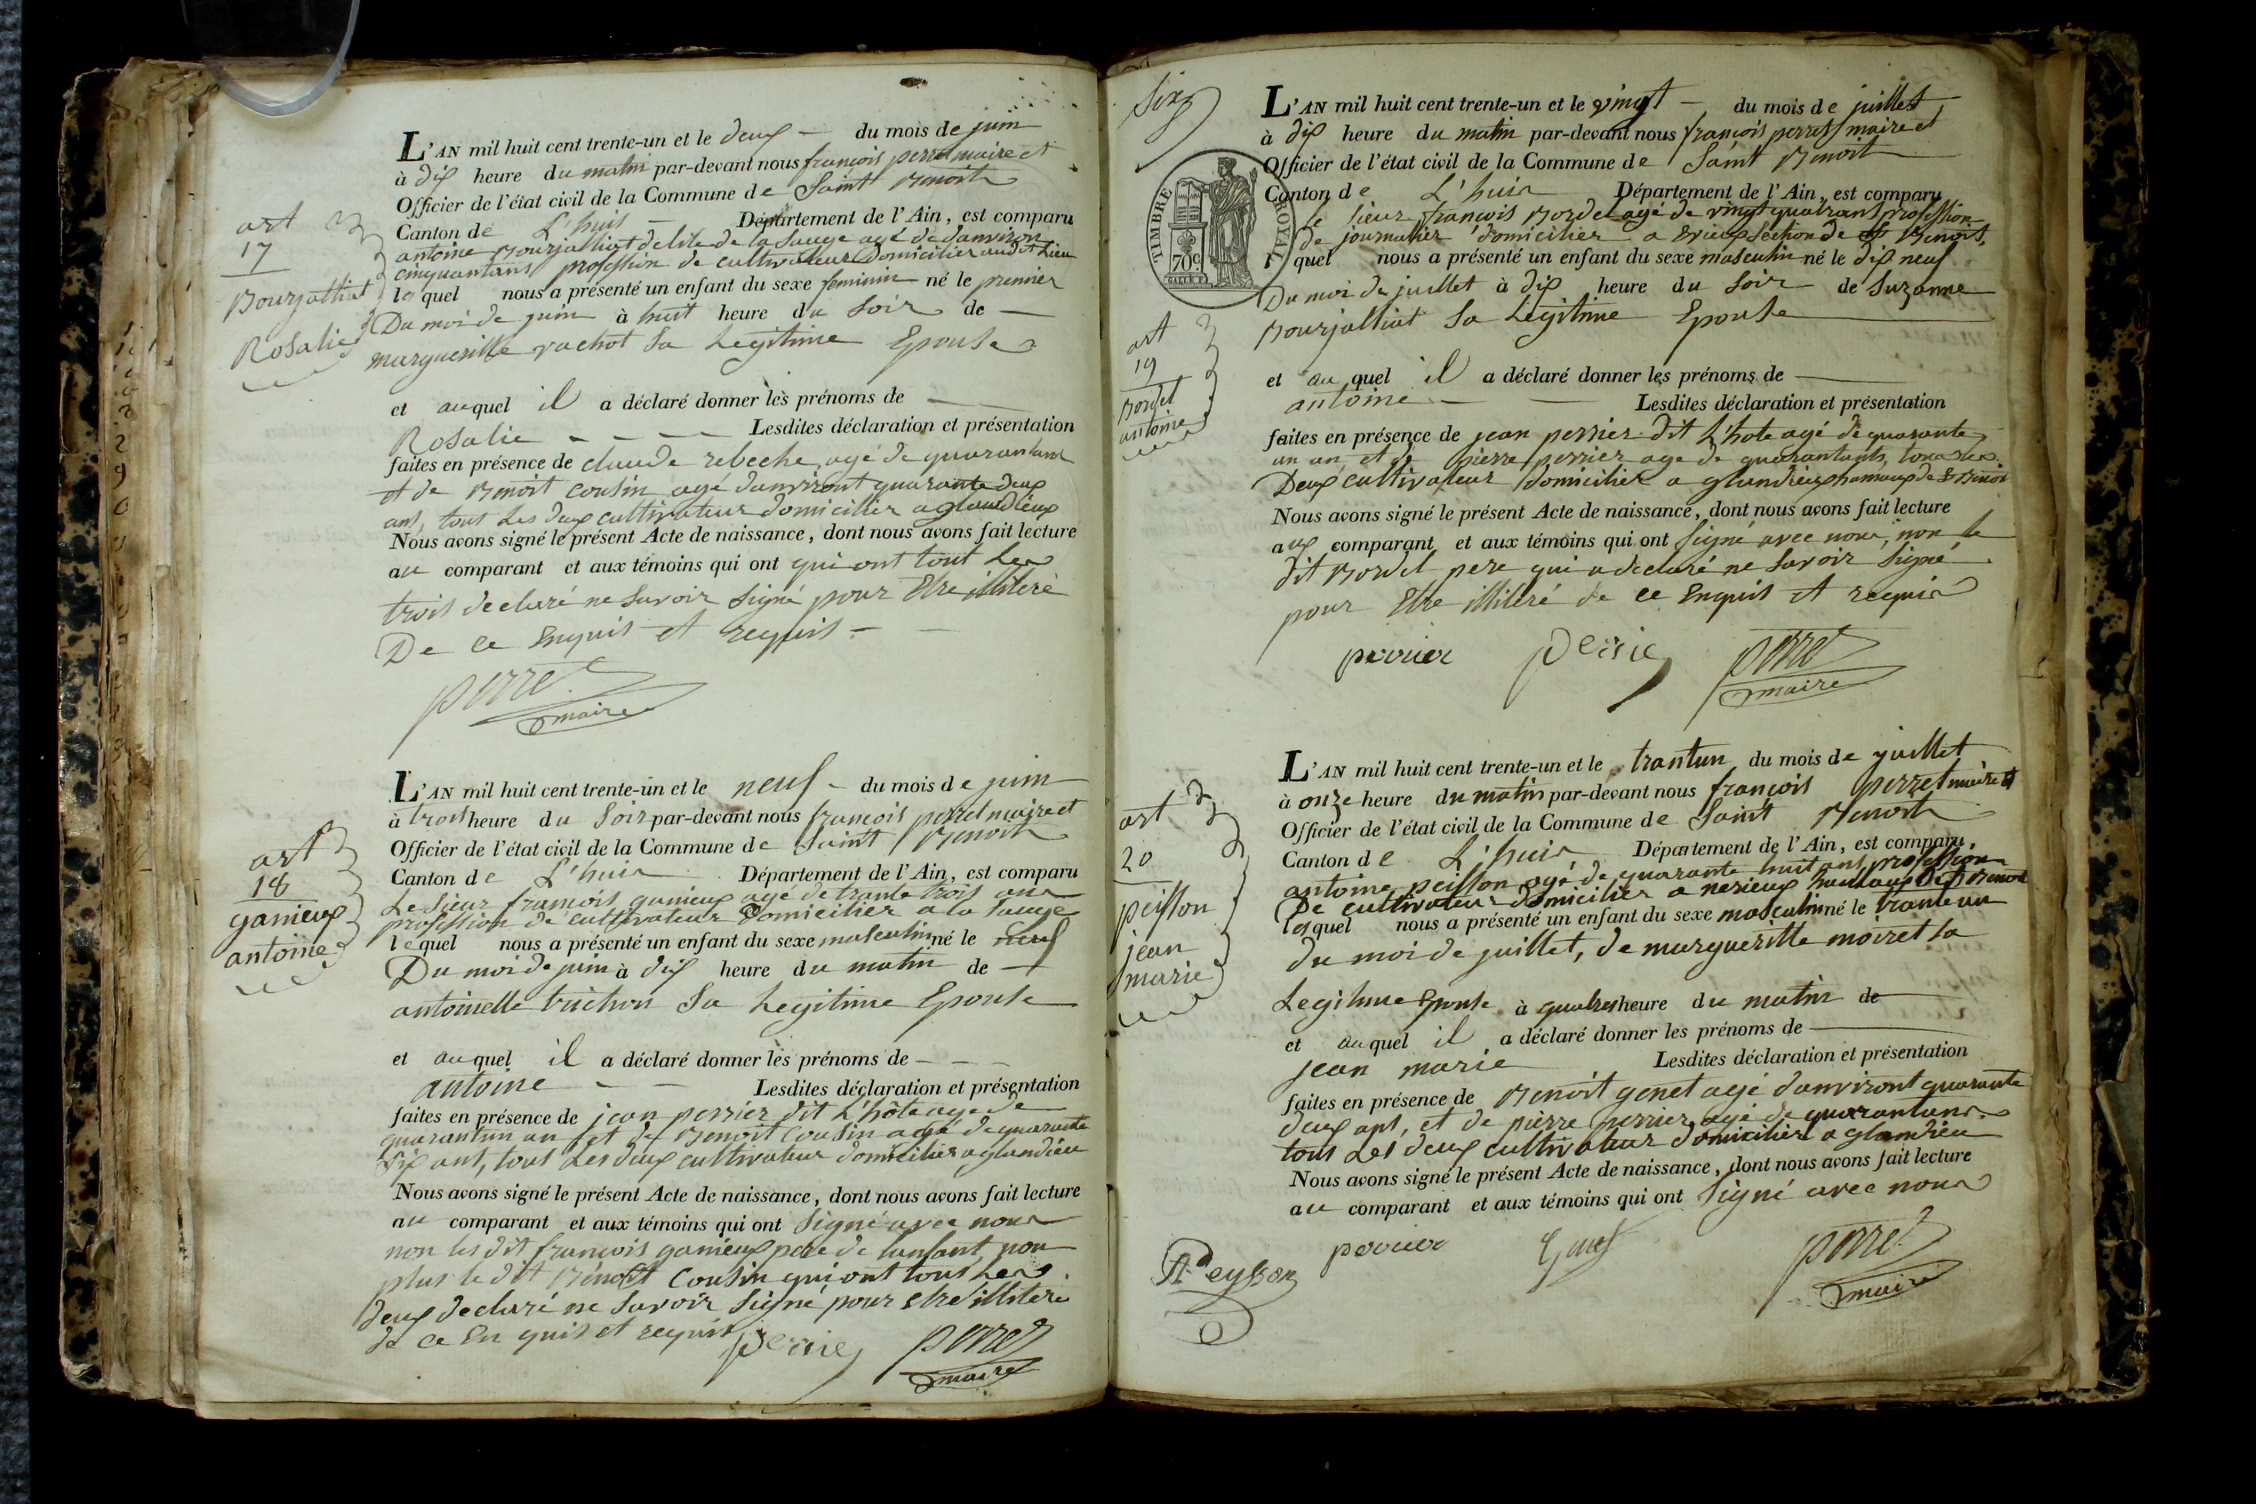 art
17
Bourjalliat
Rosalie
L'AN mil huit cent trente-un et le deux du mois de juin
à dix heure du matin par-devant nous françois perret maire et
Officier de l'état civil de la Commune de Saint Benoit
Canton de L'huis Département de l'Ain, est comparu
antoine Bourjalliat de lile de la Sauge agé danviron
cinquantans profession de cultivateur Domicilier audit Lieu
lequel nous a présenté un enfant du sexe feminin né le premier
Du moi de juin à huit heure du Soir de
margueritte vachot Sa Legitime Epouse
et auquel il a déclaré donner les prénoms de
Rosalie Lesdites déclaration et présentation
faites en présence de claude rebeche agé de quarantans
et de Benoit cousin agé danviront quarante deux
ans, tous Les deux cultivateur domicilier a glandieux
Nous avons signé le présent Acte de naissance, dont nous avons fait lecture
au comparant et aux témoins qui ont qui ont tout Les
trois declaré ne Savoir Signé pour Etre illiteré
De ce Enquis et requis
perret
maire
art
18
ganieux
antoine
L'AN mil huit cent trente-un et le neuf du mois de juin
à trois heure du Soir par-devant nous françois perret maire et
Officier de l'état civil de la Commune de Saint Benoit
Canton de L'huis Département de l'Ain, est comparu
Le Sieur françois ganieux agé de trante trois ans
profession de cultivateur Domicilier a la Sauge
lequel nous a présenté un enfant du sexe masculin né le neuf
Du moi de juin à dix heure du matin de
antoinette truchon Sa Legitime Epouse
et auquel il a déclaré donner les prénoms de
antoine Lesdites déclaration et présentation
faites en présence de jean perrier dit L'hôte age de
quarantun an et de Benoit Cousin agé de quarante
Six ant, tous Les deux cultivateur domicilier a glandieu
Nous avons signé le présent Acte de naissance, dont nous avons fait lecture
au comparant et aux témoins qui ont Signé avec nous
non les dit françois ganieux pere de lanfant non
plus le dit Benoit Cousin qui ont tous Les
deux declaré ne Savoir Signé pour etre illiteré
de ce En quis et requis
perrier perret
maire
Six
TIMBRE ROYAL
70c
art
19
Bordel
antoine
L'AN mil huit cent trente-un et le vingt du mois de juillet
à dix heure du matin par-devant nous françois perret maire et
Officier de l'état civil de la Commune de Saint Benoit
Canton de L'huis Département de l'Ain, est comparu
le Sieur françois Bordel agé de vingt quatrans profession
de journalier domicilier a Evieux Section de St Benoit
quel nous a présenté un enfant du sexe masculin né le dix neuf
Du moi de juillet à dix heure du Soir de Suzanne
Bourjalliat Sa Legitime Epouse
et au quel il a déclaré donner les prénoms de
antoine Lesdites déclaration et présentation
faites en présence de jean perrier dit L'hote agé de quarante
un an, et de pierre perrier age de quarantans, tous Les
Deux cultivateur domicilier a glandieux hameaux de St Benoit
Nous avons signé le présent Acte de naissance, dont nous avons fait lecture
aux comparant et aux témoins qui ont Signé avec nous, non le
dit Bordel pere qui a declaré ne Savoir Signé
pour Etre illiteré de ce Enquis et requis
perrier perrier perret
maire
art
20
peisson
jean
marie
L'AN mil huit cent trente-un et le trantun du mois de juillet
à onze heure du matin par-devant nous françois perret maire et
Officier de l'état civil de la Commune de Saint Benoit
Canton de L'huis Département de l'Ain, est comparu
antoine peisson agé de quarante huit ans profession
De cultivateur Domicilier a nerieux hameaux De St Benoit
lesquel nous a présenté un enfant du sexe masculin né le trante un
du moi de juillet, de margueritte moiret Sa
Legitime Epouse à quatres heure du matin de
et au quel il a déclaré donner les prénoms de
jean marie Lesdites déclaration et présentation
faites en présence de Benoit genet agé danviront quarante
deux ans, et de pierre perrier agé de quarantans
tous Les deux cultivateur domicilier a glandieu
Nous avons signé le présent Acte de naissance, dont nous avons fait lecture
au comparant et aux témoins qui ont Signé avec nous
A Peysson perrier perret
maire